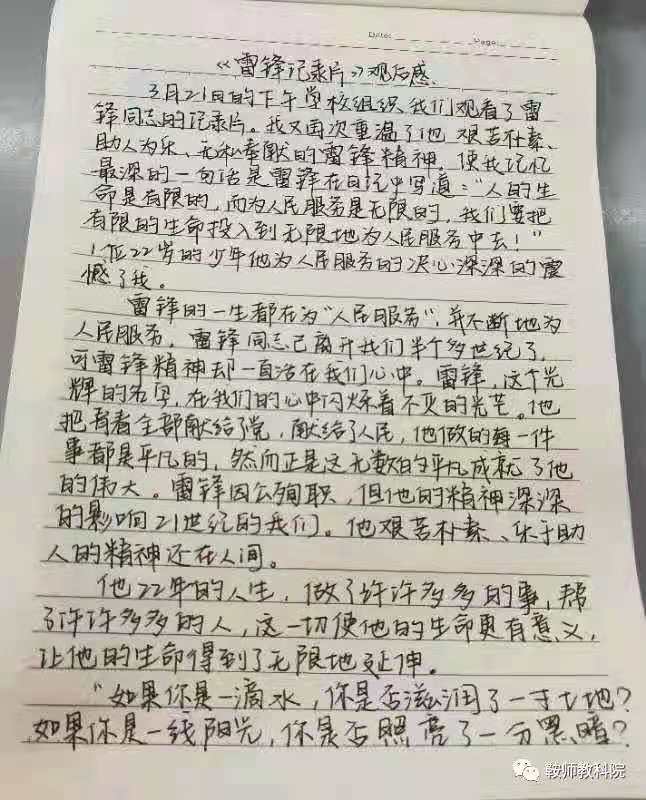 Date: Page:
《雷锋记录片》观后感
3月21日的下午学校组织我们观看了雷
锋同志的记录片。我又再次重温了他艰苦朴素、
助人为乐、无私奉献的雷锋精神，使我记忆
最深的一句话是雷锋在日记中写道：“人的生
命是有限的，而为人民服务是无限的，我们要把
有限的生命投入到无限地为人民服务中去！”
1位22岁的少年他为人民服务的决心深深的震
憾了我。
雷锋的一生都在为“人民服务”，并不断地为
人民服务，雷锋同志已离开我们半个多世纪了，
可雷锋精神却一直活在我们心中。雷锋，这个光
辉的名字，在我们的心中闪烁着不灭的光芒。他
把青春全部献给了党，献给了人民，他做的每一件
事都是平凡的，然而正是这无数的平凡成就了他
的伟大。雷锋因公殉职，但他的精神深深
的影响21世纪的我们。他艰苦朴素、乐于助
人的精神还在人间。
他22年的人生，做了许许多多的事，帮
了许许多多的人，这一切使他的生命更有意义，
让他的生命得到了无限地延伸。
“如果你是一滴水，你是否滋润了一寸土地？
如果你是一线阳光，你是否照亮了一分黑暗？
鞍师教科院